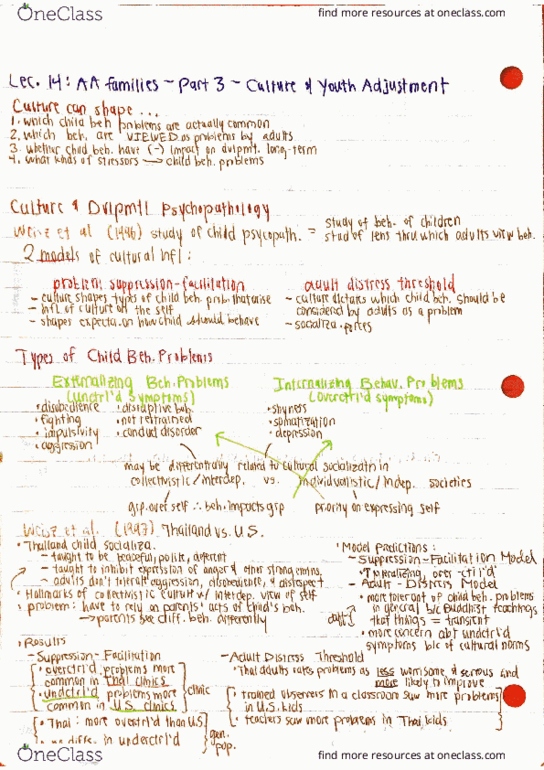 OneClass
find more resources at oneclass.com
Lec. 14: AA families - Part 3 - Culture & Youth Adjustment
Culture can shape ...
1. which child beh problems are actually common
2. which beh. are VIEWED as problems by adults
3. whether child beh. have (-) impact on dvlpmt. long-term
4. what kinds of stressors → child beh. problems
Culture & Dvlpmtl Psychopathology
Weisz et al (1996) study of child psycopath. = study of beh. of children
study of lens thru which adults view beh.
2 models of cultural infl:
problem suppression-facilitation
- culture shapes types of child beh prob. that arise
- infl. of culture on the self
- shapes expecta. on how child should behave
adult distress threshold
- culture dictates which child beh. should be
considered by adults as a problem
- socializa. forces
Types of Child Beh. Problems
Externalizing Beh. Problems
(unctrl'd symptoms)
• disobedience
• fighting
• impulsivity
• aggression
• disruptive beh.
• not restrained
• conduct disorder
Internalizing Behav. Problems
(overctrl'd symptoms)
• shyness
• somatization
• depression
may be differentially related to cultural socializatn in
collectivistic/interdep. vs. individualistic/indep. societies
grp over self ∴ beh. impacts grp
priority on expressing self
Weisz et al. (1997) Thailand vs. U.S.
• Thailand child socializa.
- taught to be peaceful, polite, deferent
- taught to inhibit expression of anger & other strong emns.
- adults don't tolerate aggression, disobedience, & disrespect
• Hallmarks of collectivistic culture w/ interdep. view of self
• problem: have to rely on parents' accts of child's beh.
→ parents see diff. beh. differently
• Model predictions:
- Suppression-Facilitation Model
- Adult-Distress Model
• more tolerant of child beh. problems
in general b/c Buddhist teachings
that things = transient
• more concern abt undctrl'd
symptoms b/c of cultural norms
• Results
- Suppression-Facilitation
• overctrl'd problems more
common in Thai clinics
• undctrl'd problems more
common in U.S. clinics
clinic
• Thai: more overctrl'd than U.S.
• no diffc. in underctrl'd
gen.
pop.
- Adult Distress Threshold
• Thai adults rates problems as less worrisome & serious and
more likely to improve
• trained observers in a classroom saw more problems
in U.S. kids
• teachers saw more problems in Thai kids
OneClass
find more resources at oneclass.com